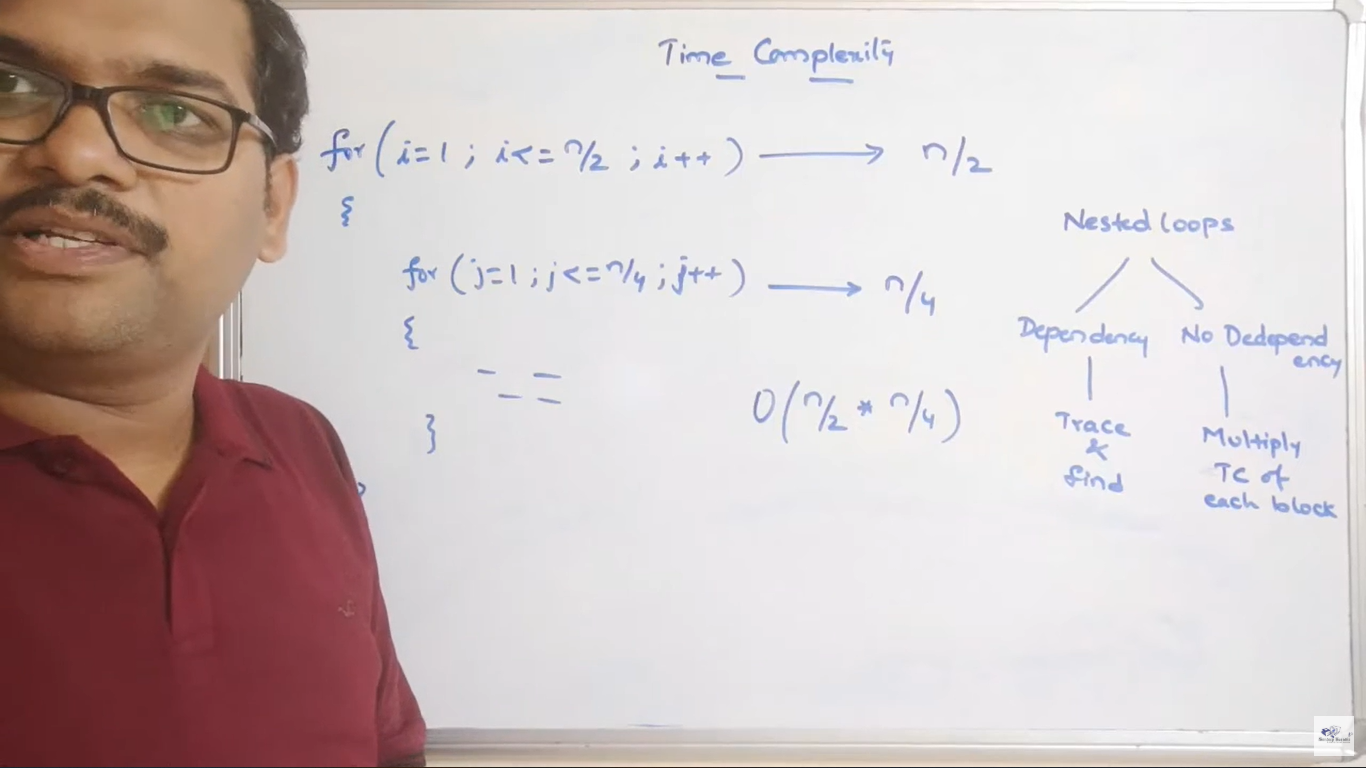 Time Complexity
for ( i=1 ; i<= n/2 ; i++ ) ⟶ n/2
{
for ( j=1 ; j<= n/4 ; j++ ) ⟶ n/4
{
}
O(n/2 * n/4)
Nested loops
Dependency
Trace
&
find
No Dedepend
ency
Multiply
TC of
each block